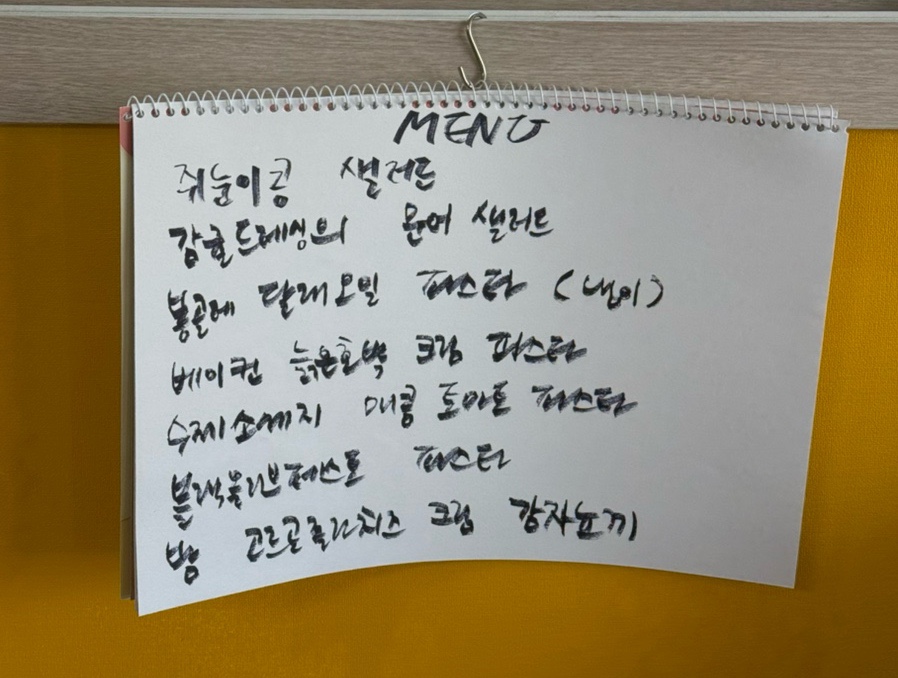 MENU
쥐눈이콩 샐러드
감귤드레싱의 문어 샐러드
봉골레 달래오일 파스타 (냉이)
베이컨 늙은호박 크림 파스타
수제소세지 매콤 토마토 파스타
블랙올리브페스토 파스타
밤 고르곤졸라치즈 크림 감자뇨끼